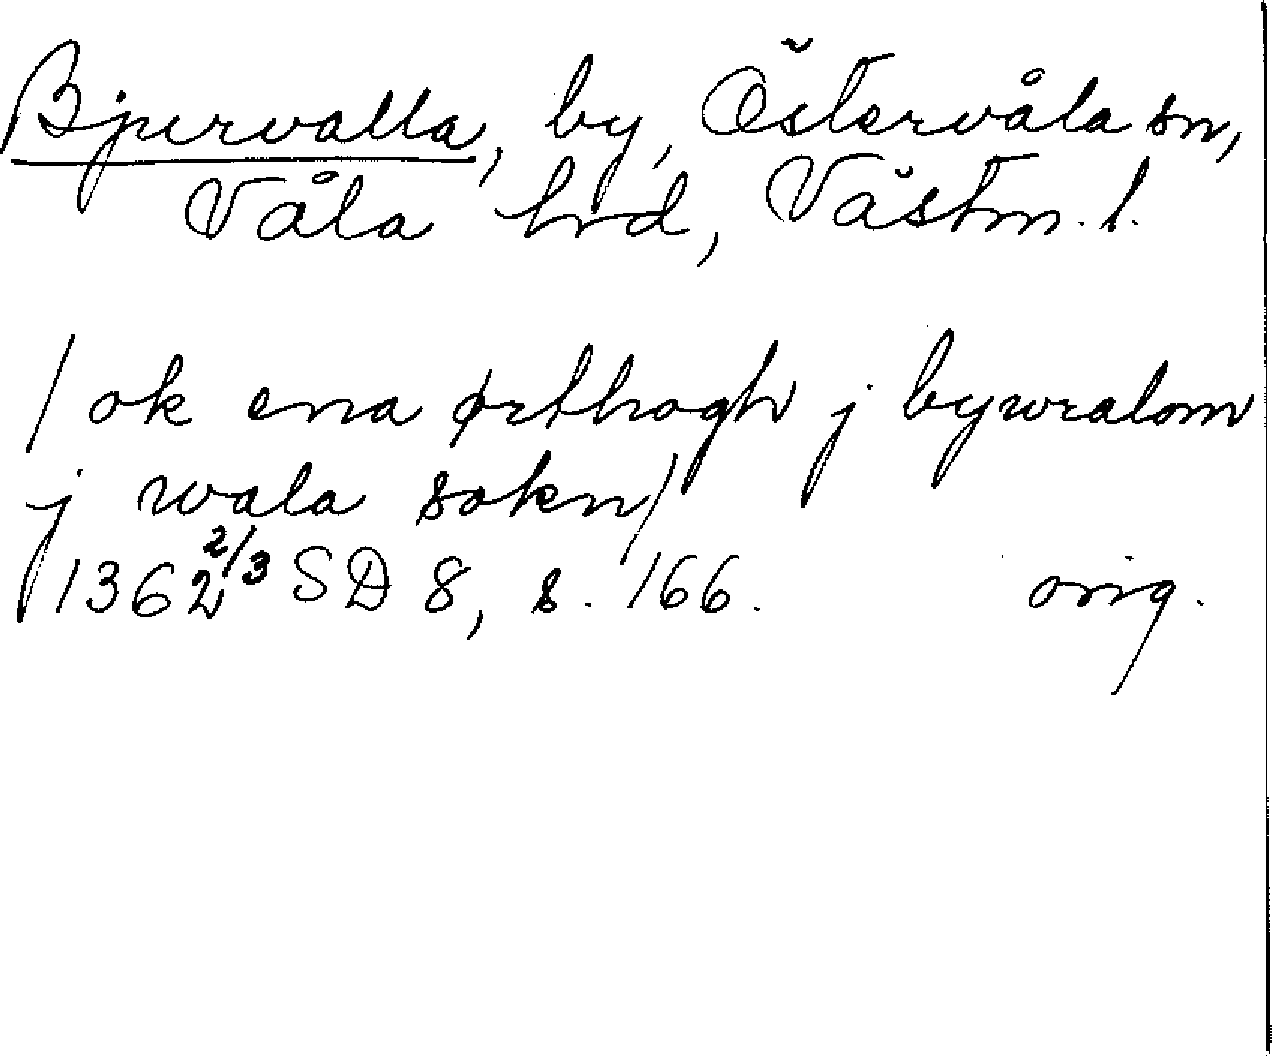 Bjurvalla, by, Östervåla sn,
Våla hrd, Västm. l.
/ ok ena ørthogh j bywralom
j wala sokn/
1362 2/3 SD 8, s. 166. orig.